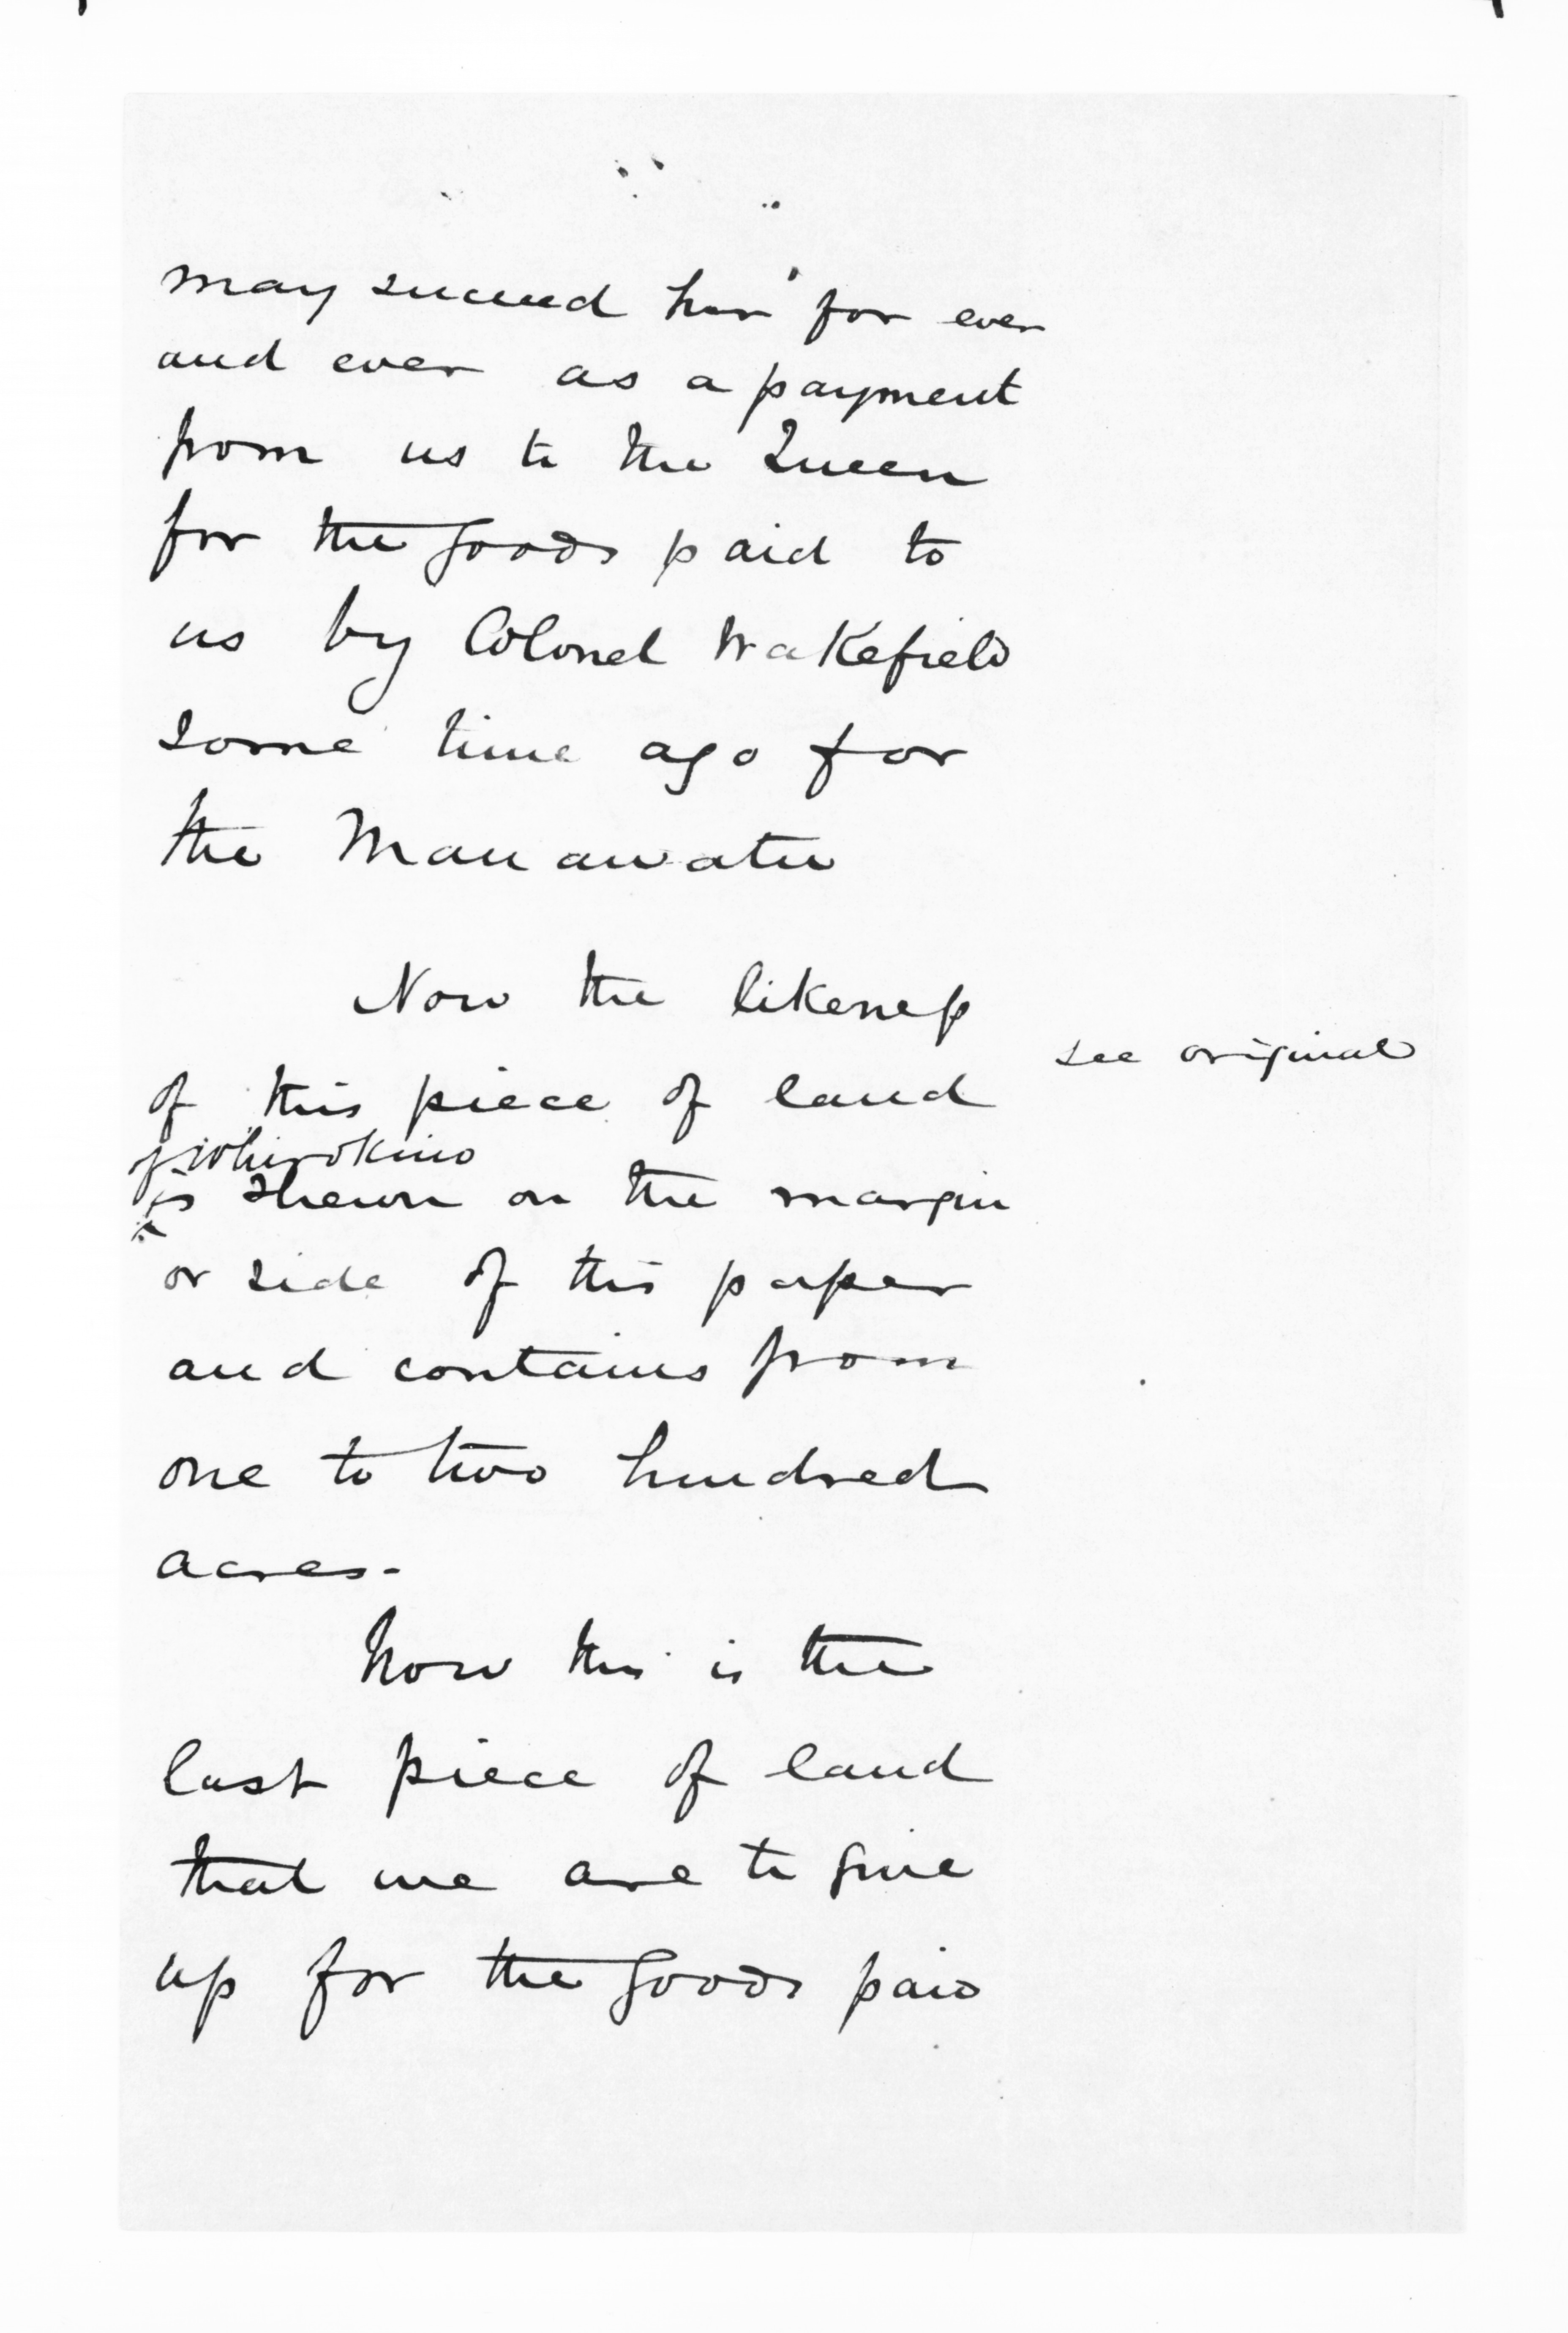 may succeed her for ever
and ever as a payment
from us to the Queen
for the goods paid to
us by Colonel Wakefield
some time ago for
the Manawatu
Now the likeness
see original
of this piece of land
of Whirokino
is shewn on the margin
or side of this paper
and contains from
one to two hundred
acres.
Now this is the
last piece of land
that we are to give
up for the goods paid